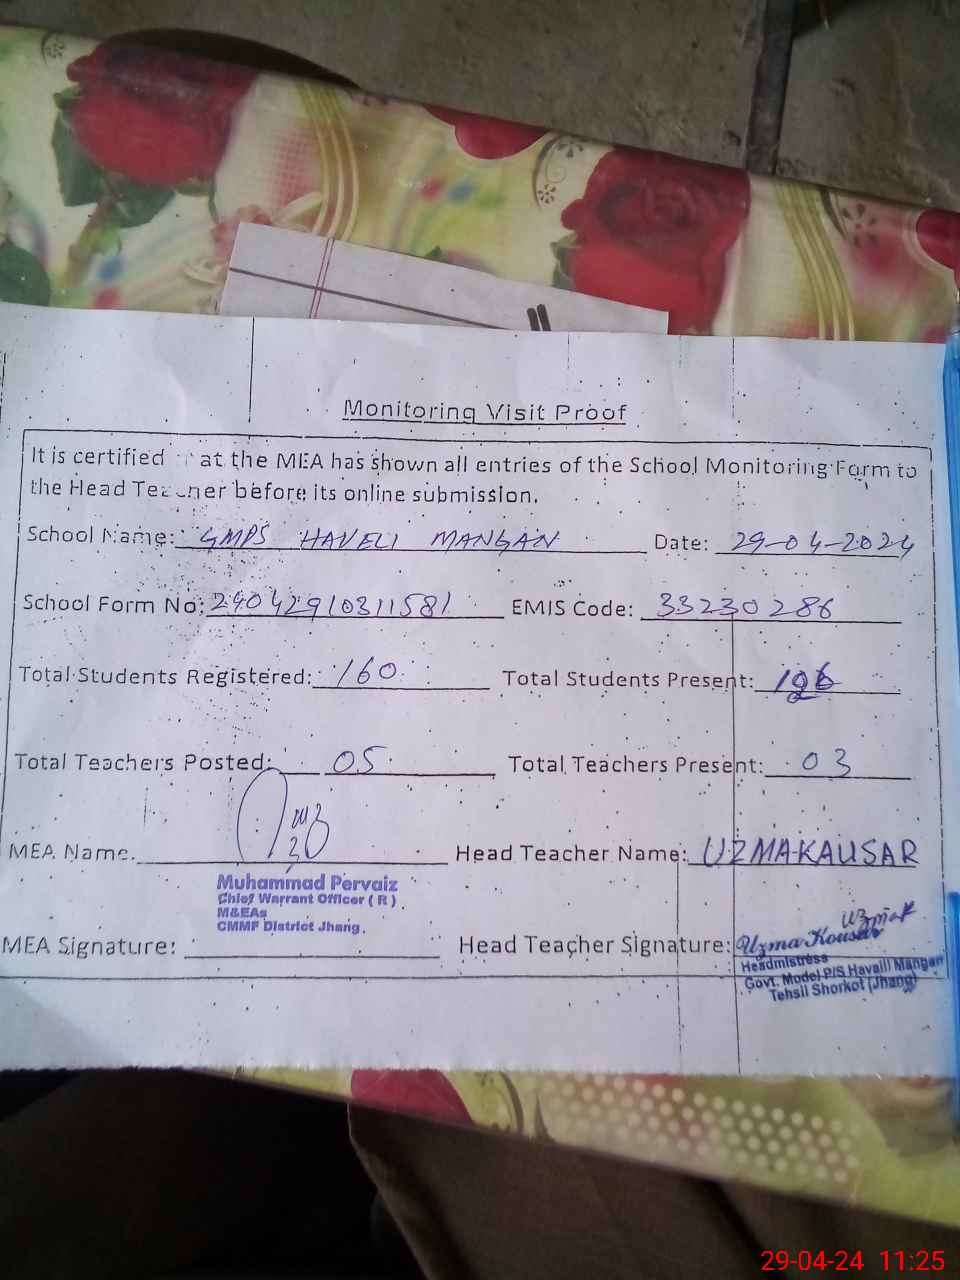 Monitoring Visit Proof
It is certified at the MEA has shown all entries of the School Monitoring Form to
the Head Teacher before its online submission.
School Name: GMPS HAVELI MANGAN Date: 29-04-2024
School Form No: 29042910311581 EMIS Code: 33230286
Total Students Registered: 160 Total Students Present:
Total Teachers Posted: 05 Total Teachers Present: 03
MEA Name. Head Teacher Name: UZMA KAUSAR
Muhammad Pervaiz
Chief Warrant Officer ( R )
M&EAs
CMMF District Jhang.
MEA Signature: Head Teacher Signature: Uzma Kousar
Headmistress
Govt. Model P/S Havaili Mangan
Tehsil Shorkot (Jhang)
29-04-24 11:25